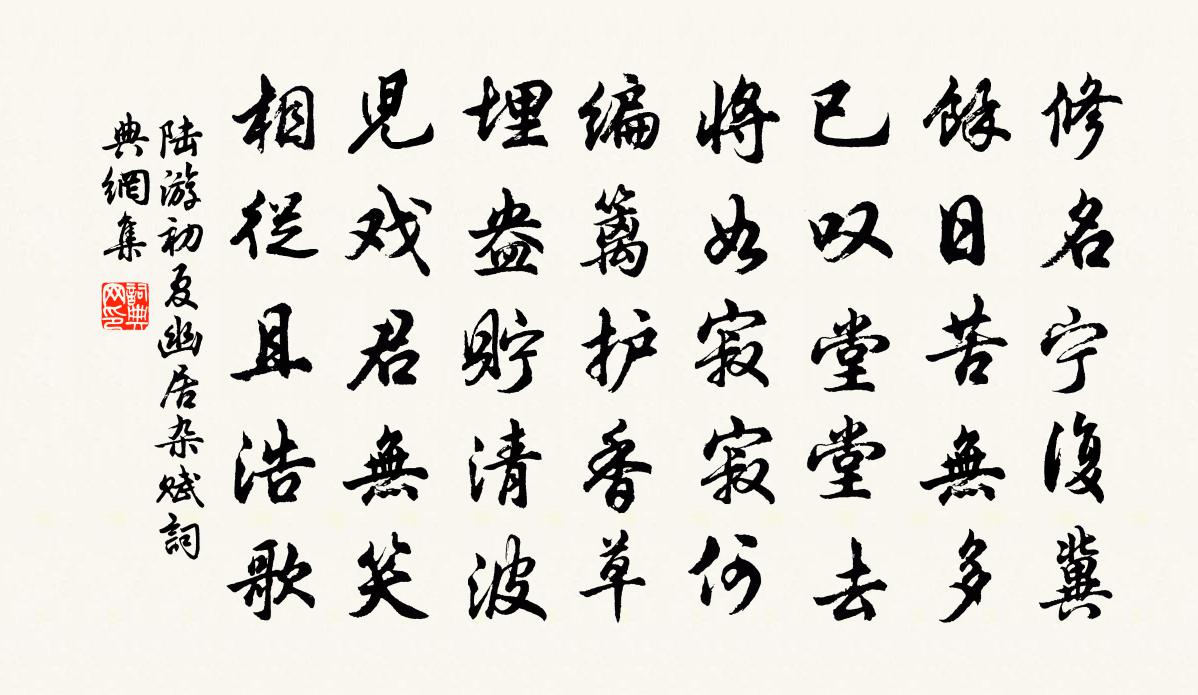 修名宁復冀
餘日苦無多
已叹堂堂去
將如寂寂何
编篱护香草
埋盎貯清波
児戏君無笑
相從且浩歌
陆游初夏幽居杂赋詞
典網集
詞典网印